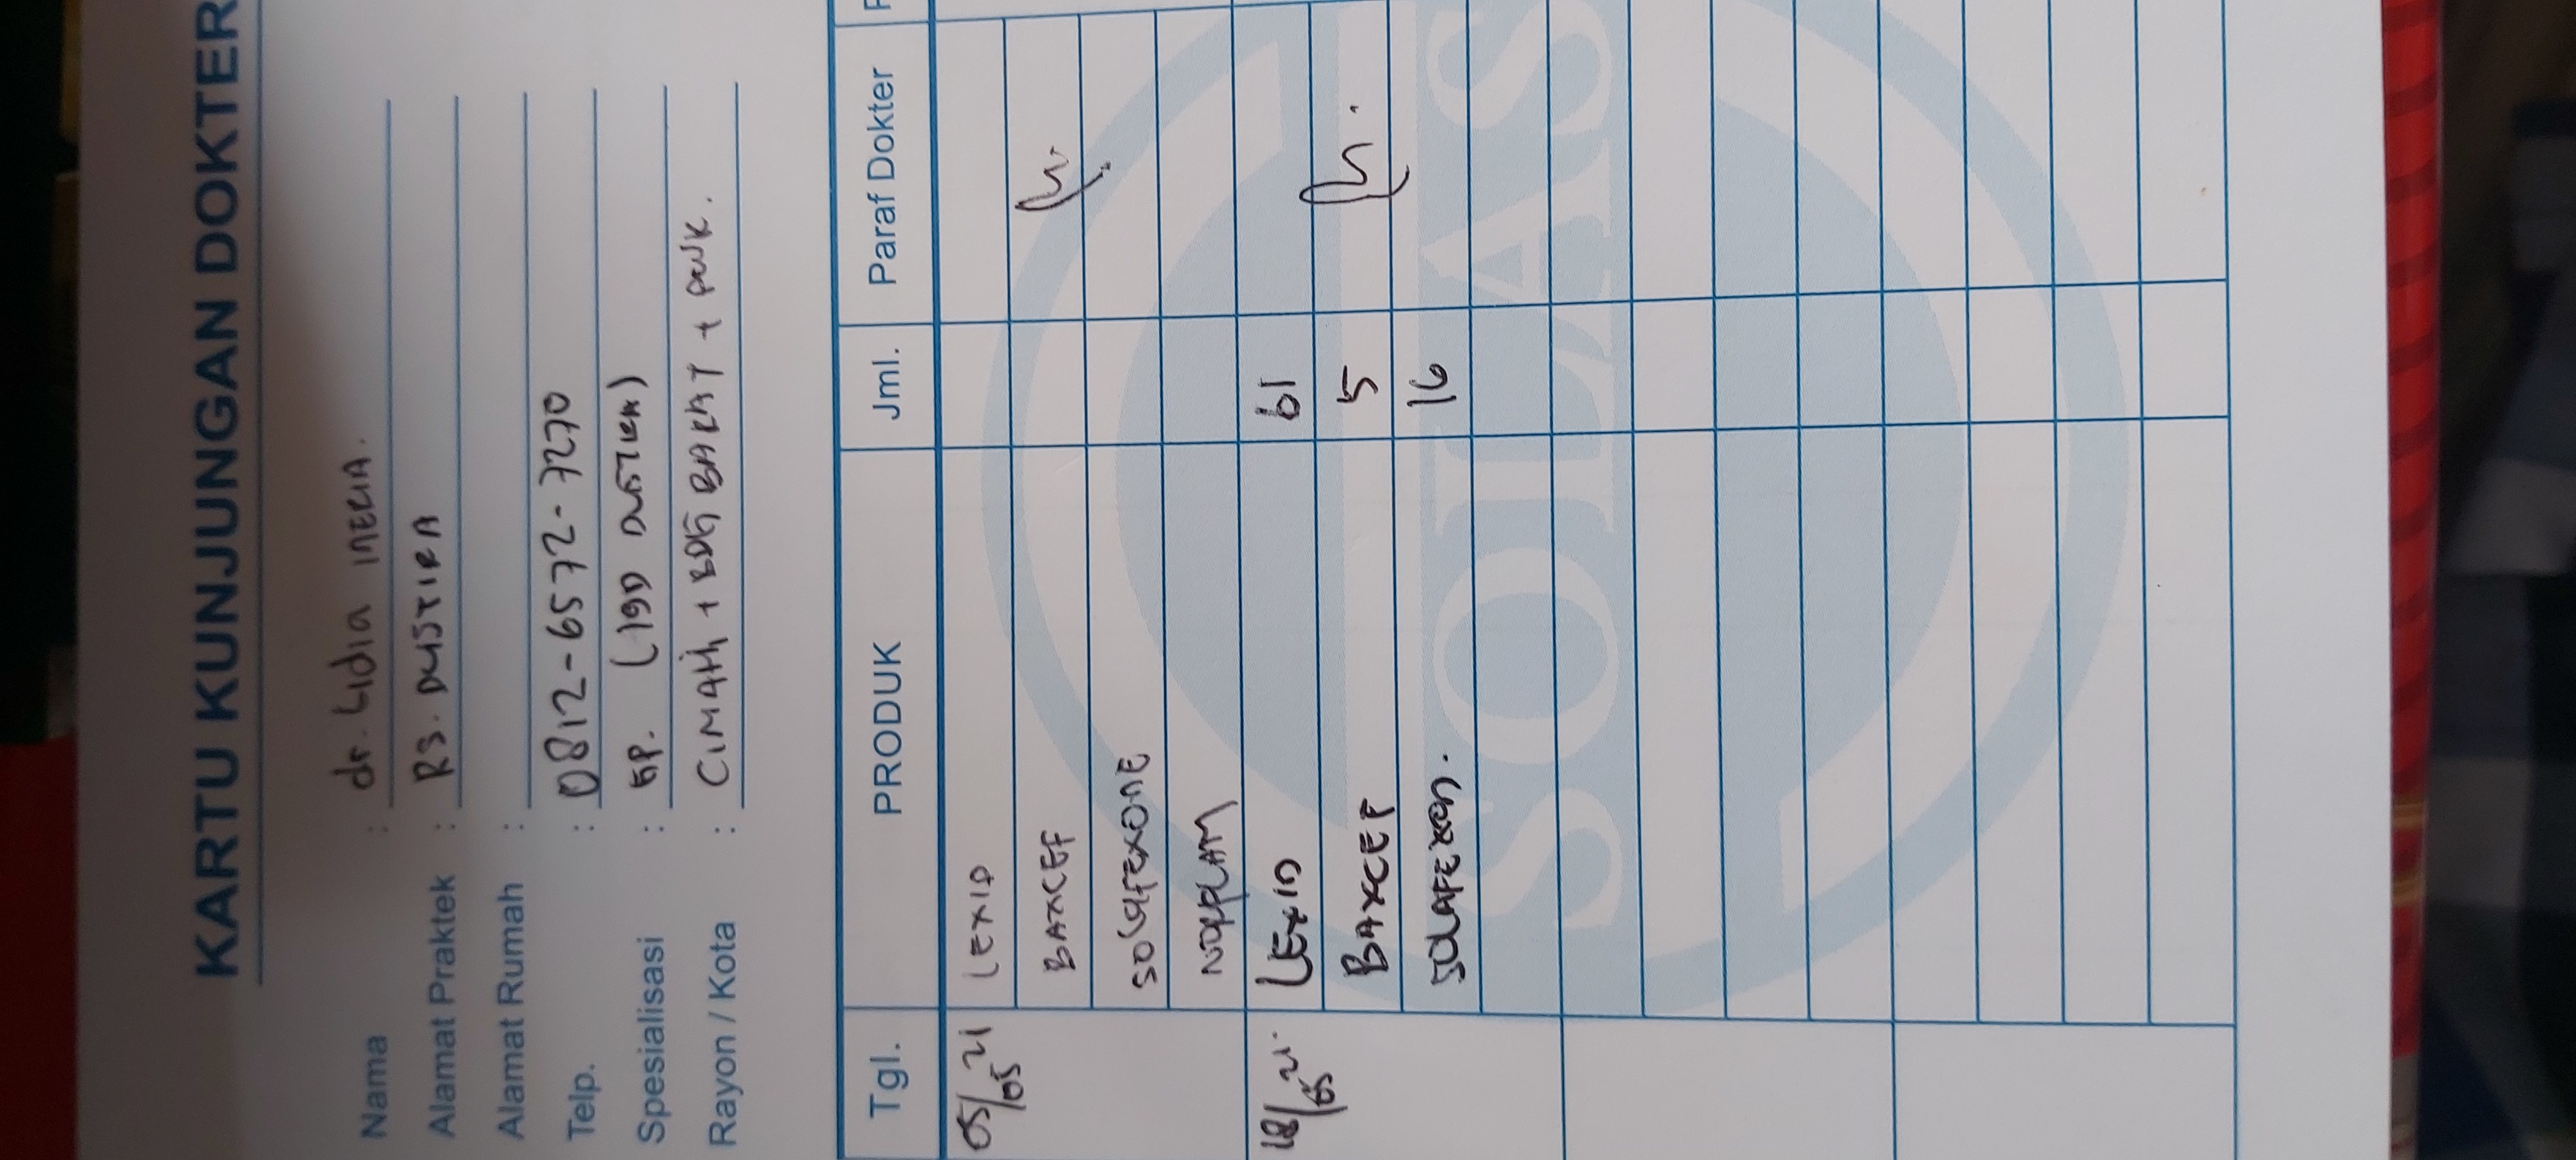 KARTU KUNJUNGAN DOKTER
Nama : dr. Lidia INERIA.
Alamat Praktek : RS. DUSTIRA
Alamat Rumah :
Telp. : 0812-6572-7270
Spesialisasi : GP. (IGD DUSTIRA)
Rayon / Kota : CIMAHI + BDG BARAT + PWK.
Tgl. PRODUK Jml. Paraf Dokter
05/05 21 LEXID
BAXCEF
SOLAFEXONE
NOPPLAM
18/05 21. LEXID 61
BAXCEF 5
SOLAFEXON. 16
SOLAS